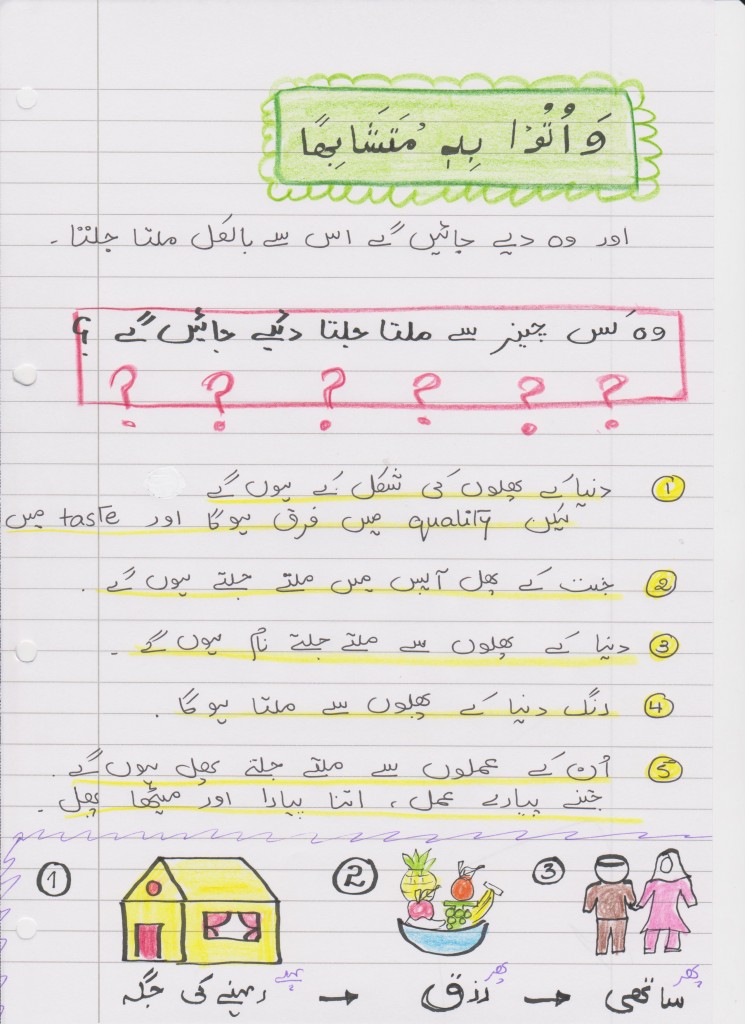 وَ اُتُوْا بِهٖ مُتَشَابِهًا
اور وہ دیے جائیں گے اس سے بالکل ملتا جلتا۔
وہ کس چیز سے ملتا جلتا دئیے جائیں گے ؟
? ? ? ? ? ?
1 دنیا کے پھلوں کی شکل کے ہوں گے
لیکن quality میں فرق ہوگا اور taste میں
2 جنت کے پھل آپس میں ملتے جلتے ہوں گے .
3 دنیا کے پھلوں سے ملتے جلتے نام ہوں گے .
4 رنگ دنیا کے پھلوں سے ملتا ہوگا .
5 اُن کے عملوں سے ملتے جلتے پھل ہوں گے .
جتنے پیارے عمل ، اتنا پیارا اور میٹھا پھل .
1 2 3
پہلے پھر پھر
رہنے کی جگہ → رزق → ساتھی